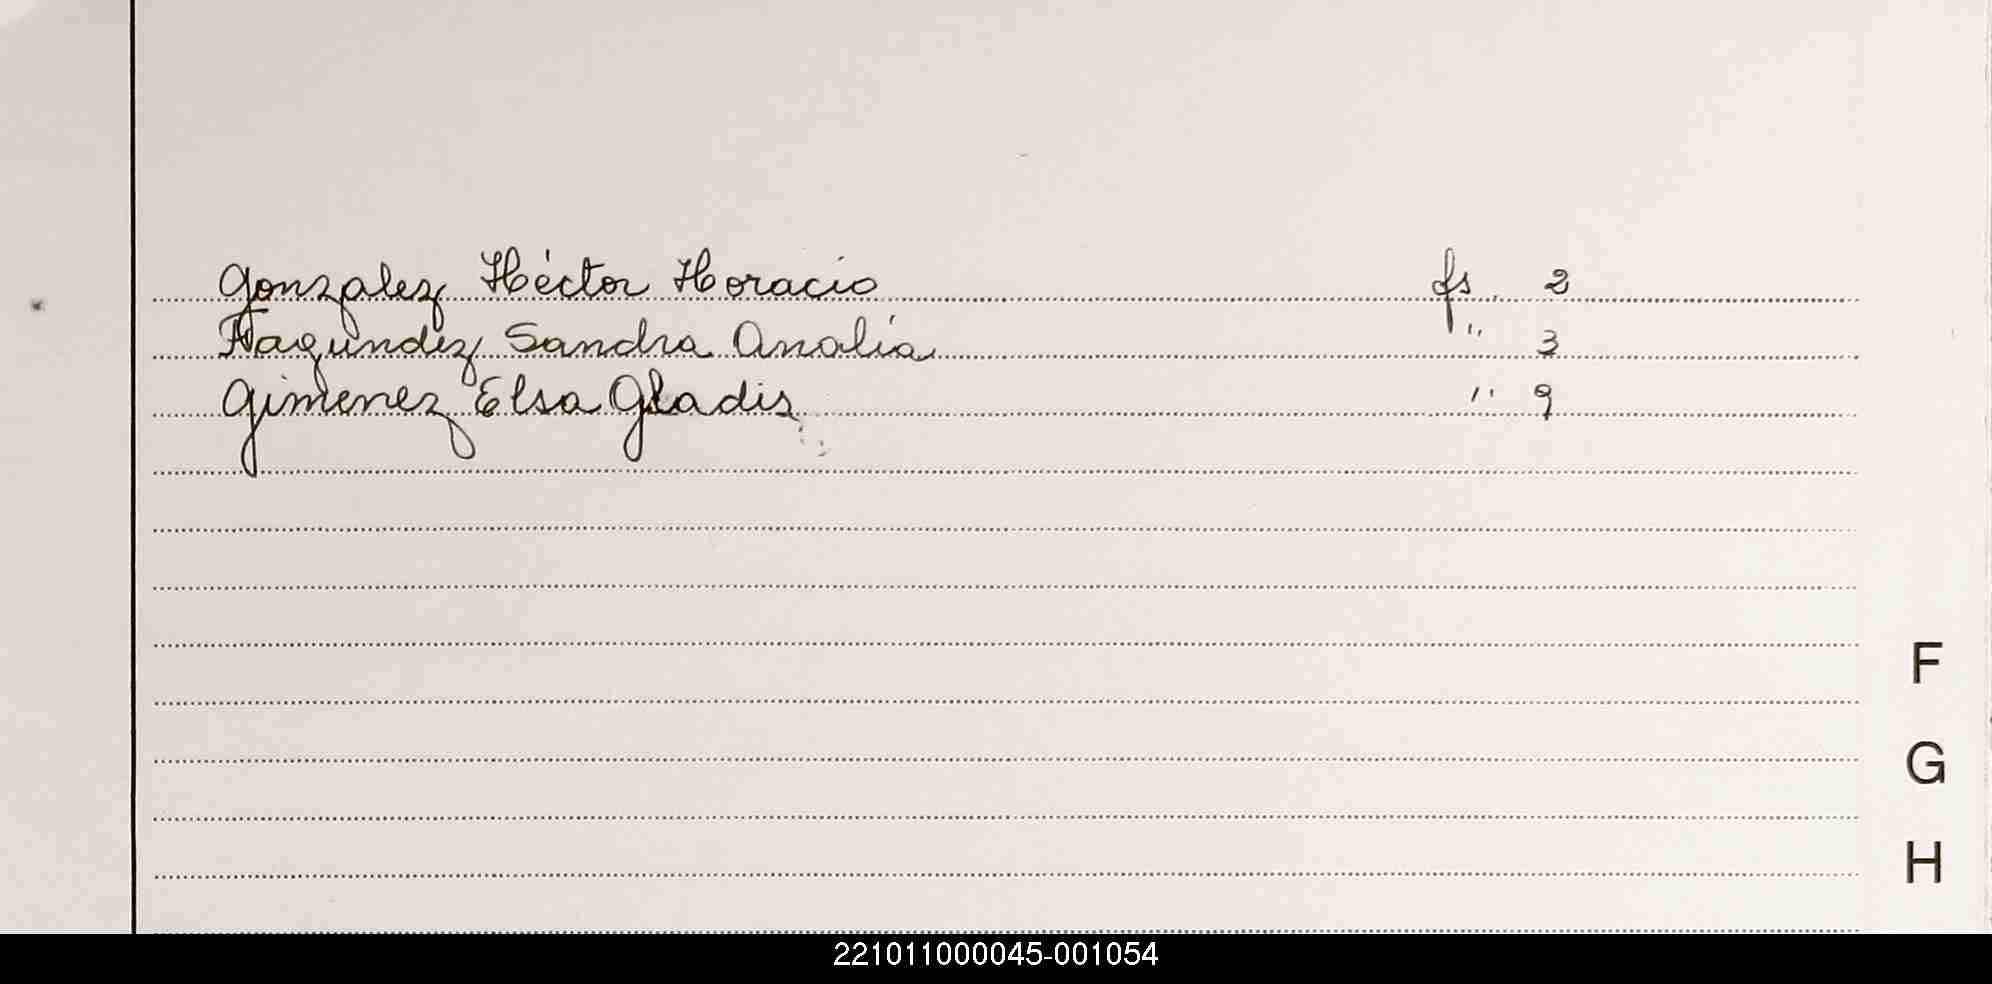 Gonzalez Héctor Horacio fs. 2
Fagundez Sandra Analía " 3
Gimenez Elsa Gladis " 9
F
G
H
221011000045-001054